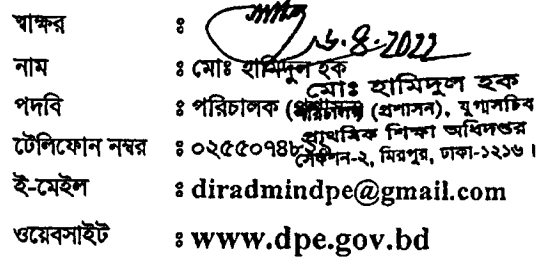 স্বাক্ষর :
16.8.2022
নাম : মোঃ হামিদুল হক
মোঃ হামিদুল হক
পদবি : পরিচালক (প্রশাসন)
পরিচালক (প্রশাসন), যুগ্মসচিব
প্রাথমিক শিক্ষা অধিদপ্তর
টেলিফোন নম্বর : ০২৫৫০৭৪৮
সেকশন-২, মিরপুর, ঢাকা-১২১৬।
ই-মেইল : diradmindpe@gmail.com
ওয়েবসাইট : www.dpe.gov.bd